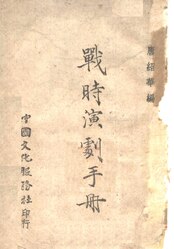 唐紹華編
戰時演劇手冊
中國文化服務社印行